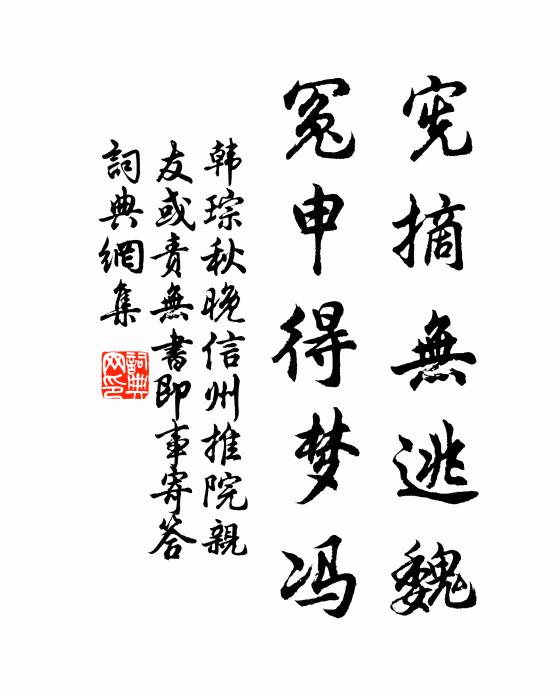 宄摘無逃魏
冤申得梦冯
韩琮秋晚信州推院親
友或责無書即事寄答
詞典網集
詞典网印